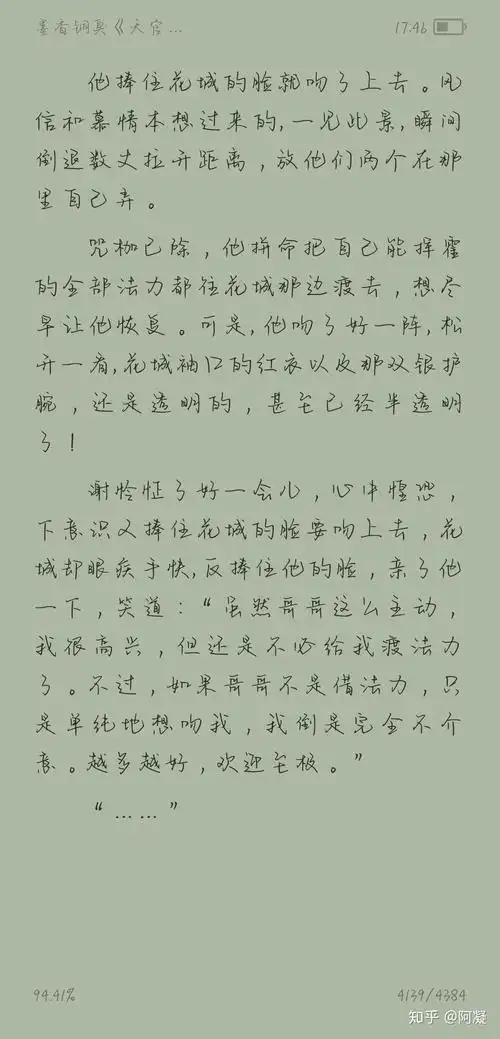 墨香铜臭《天官...
17:46
他捧住花城的脸就吻了上去。风
信和慕情本想过来的,一见此景,瞬间
倒退数丈拉开距离，放他们两个在那
里自己弄。
咒枷已除，他拼命把自己能挥霍
的全部法力都往花城那边渡去，想尽
早让他恢复。可是,他吻了好一阵,松
开一看,花城袖口的红衣以及那双银护
腕，还是透明的，甚至已经半透明
了！
谢怜怔了好一会儿，心中惶恐，
下意识又捧住花城的脸要吻上去，花
城却眼疾手快,反捧住他的脸，亲了他
一下，笑道：“虽然哥哥这么主动，
我很高兴，但还是不必给我渡法力
了。不过，如果哥哥不是借法力，只
是单纯地想吻我，我倒是完全不介
意。越多越好，欢迎至极。”
“……”
94.41%
4139/4384
知乎 @阿凝